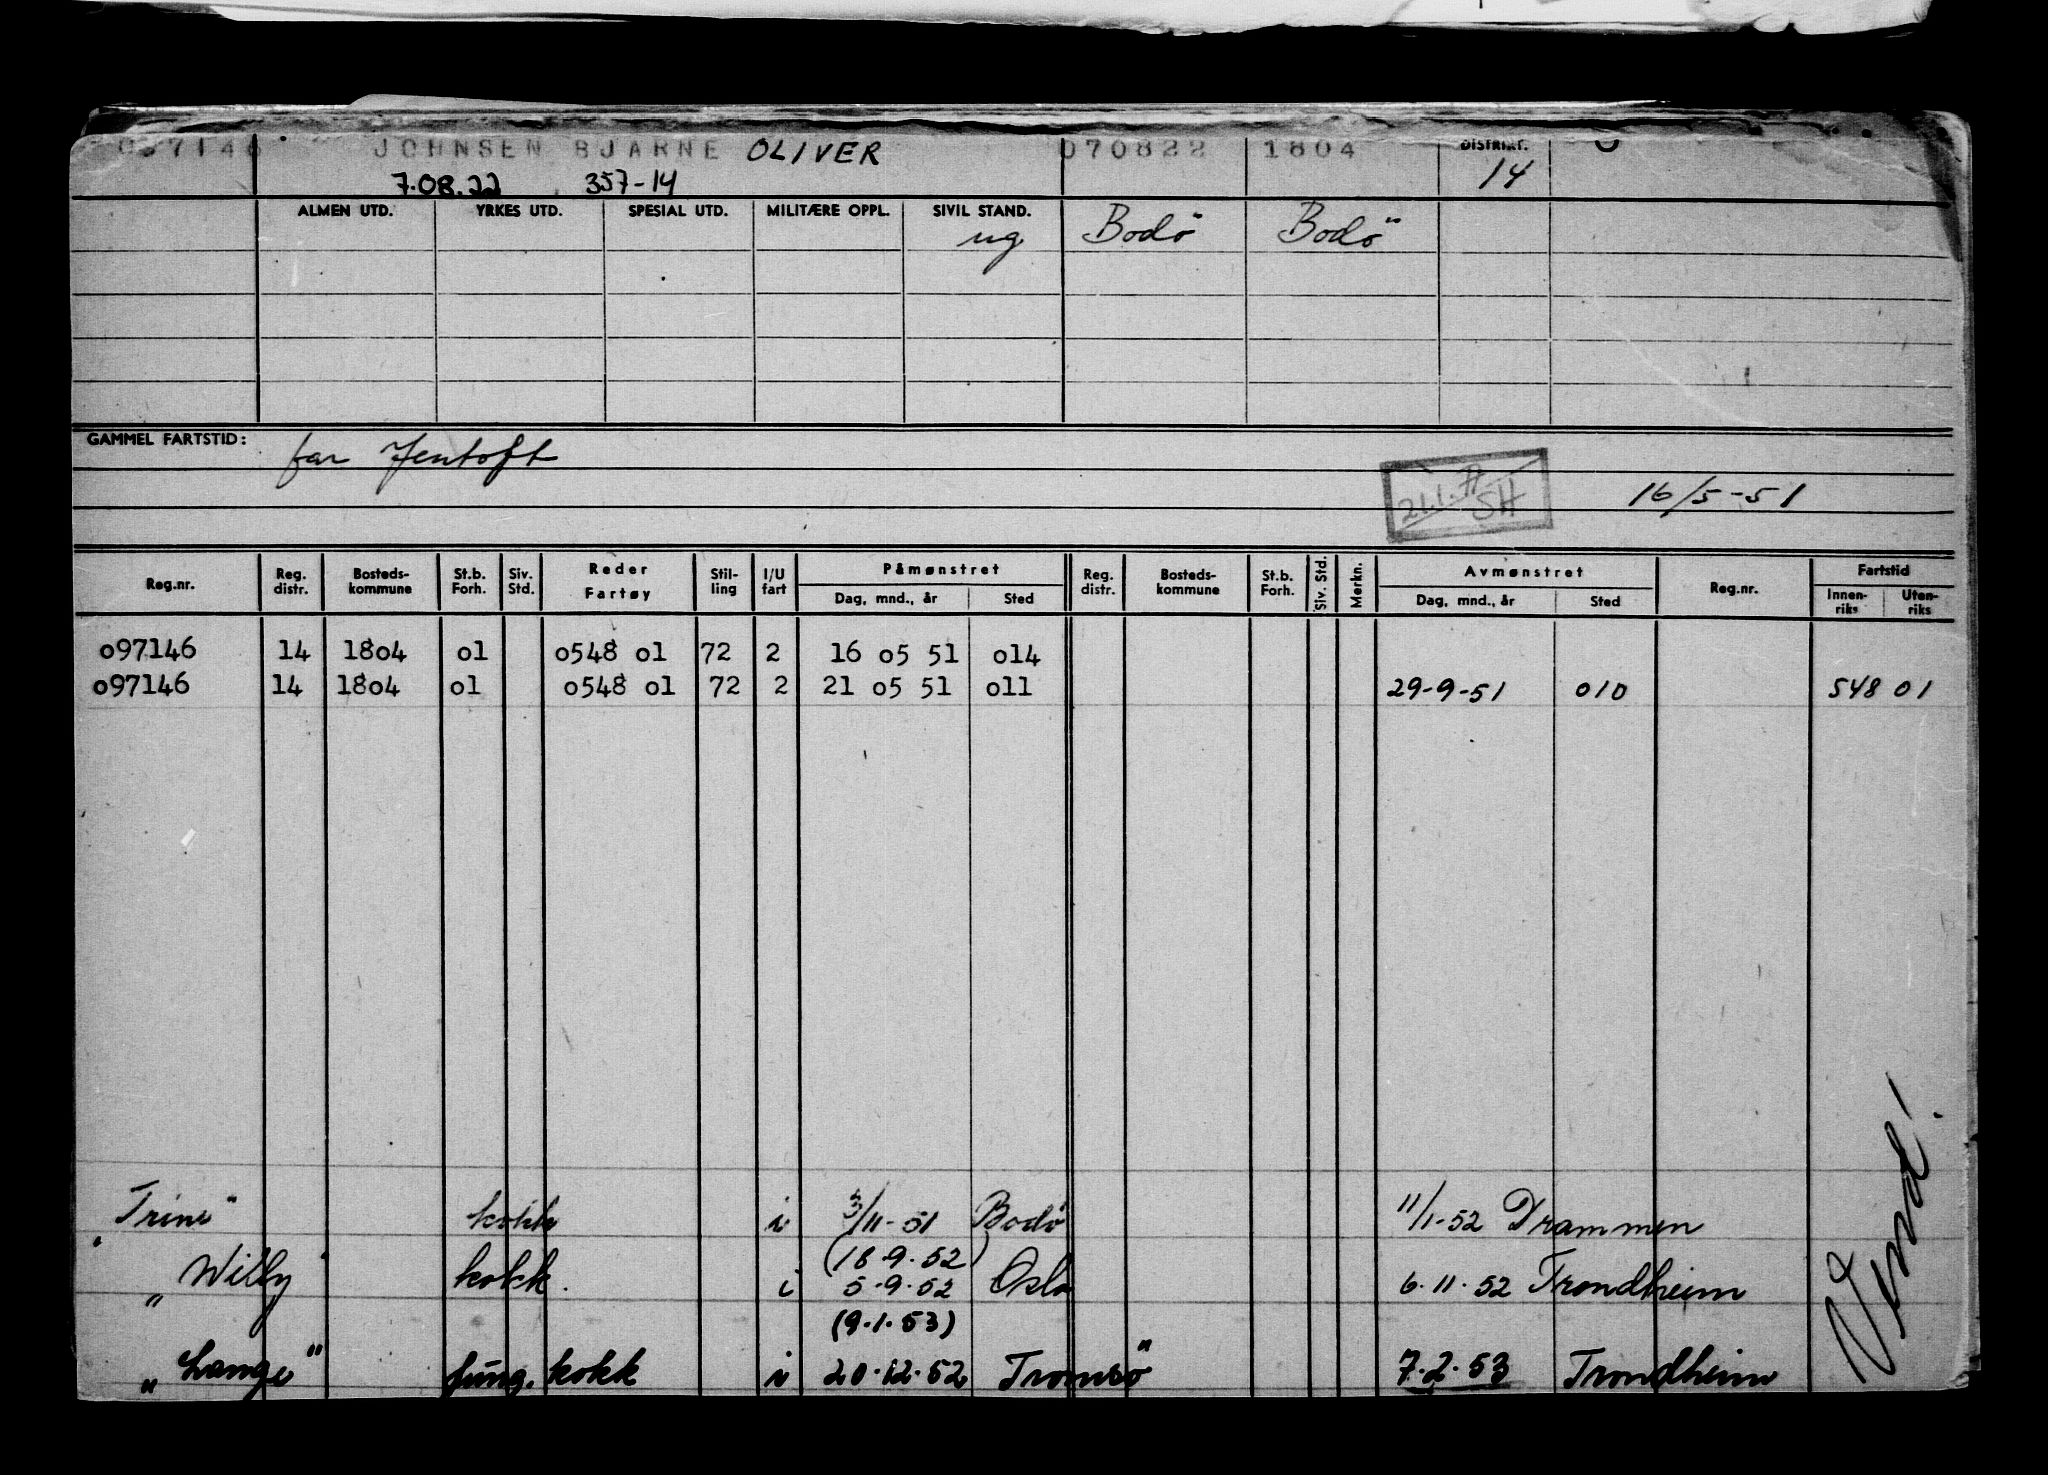 097146 JOHNSEN BJARNE OLIVER 070822 1804 DISTRIKT. 14
7.08.22 357-14
ALMEN UTD. YRKES UTD. SPESIAL UTD. MILITÆRE OPPL. SIVIL STAND.
ug Bodö Bodö
GAMMEL FARTSTID: far Jentoft
21.1.77 SH 16/5-51
Reg.nr. Reg. distr. Bosteds- kommune St.b. Forh. Siv. Std. Reder Fartøy Stil- ling I/U fart Påmønstret Dag, mnd., år Sted Reg. distr. Bosteds- kommune St.b. Forh. Siv. Std. Merkn. Avmønstret Dag, mnd., år Sted Reg.nr. Fartstid Innen- riks Uten- riks
o97146 14 18o4 o1 o548 o1 72 2 16 o5 51 o14
o97146 14 18o4 o1 o548 o1 72 2 21 o5 51 o11 29-9-51 010 548 01
"Trine" kokk i 3/11-51 Bodö 11/1-52 Drammen
(18.9.52)
"Willy" kokk. i 5.9.52 Oslo 6.11.52 Trondheim
(9.1.53)
"Lange" fung. kokk i 20.12.52 Tromsö 7.2.53 Trondheim
Vend!